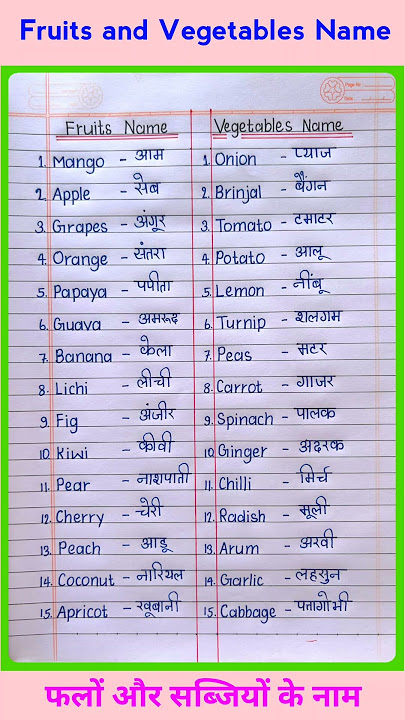 Fruits and Vegetables Name
Page No.
Date
Fruits Name
1. Mango - आम
2. Apple - सेब
3. Grapes - अंगूर
4. Orange - संतरा
5. Papaya - पपीता
6. Guava - अमरूद
7. Banana - केला
8. Lichi - लीची
9. Fig - अंजीर
10. Kiwi - कीवी
11. Pear - नाशपाती
12. Cherry - चेरी
13. Peach - आडू
14. Coconut - नारियल
15. Apricot - खूबानी
Vegetables Name
1. Onion - प्याज
2. Brinjal - बैंगन
3. Tomato - टमाटर
4. Potato - आलू
5. Lemon - नींबू
6. Turnip - शलगम
7. Peas - मटर
8. Carrot - गाजर
9. Spinach - पालक
10. Ginger - अदरक
11. Chilli - मिर्च
12. Radish - मूली
13. Arum - अरवी
14. Garlic - लहसुन
15. Cabbage - पत्तागोभी
फलों और सब्जियों के नाम